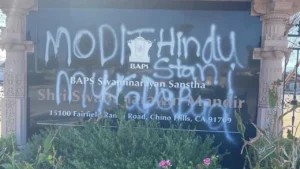 MODI Hindu
BAPS
Stan
BAPS Swaminarayan Sanstha
Shri Mandir
15100 Fairfield Ranch Road, Chino Hills, CA 91709